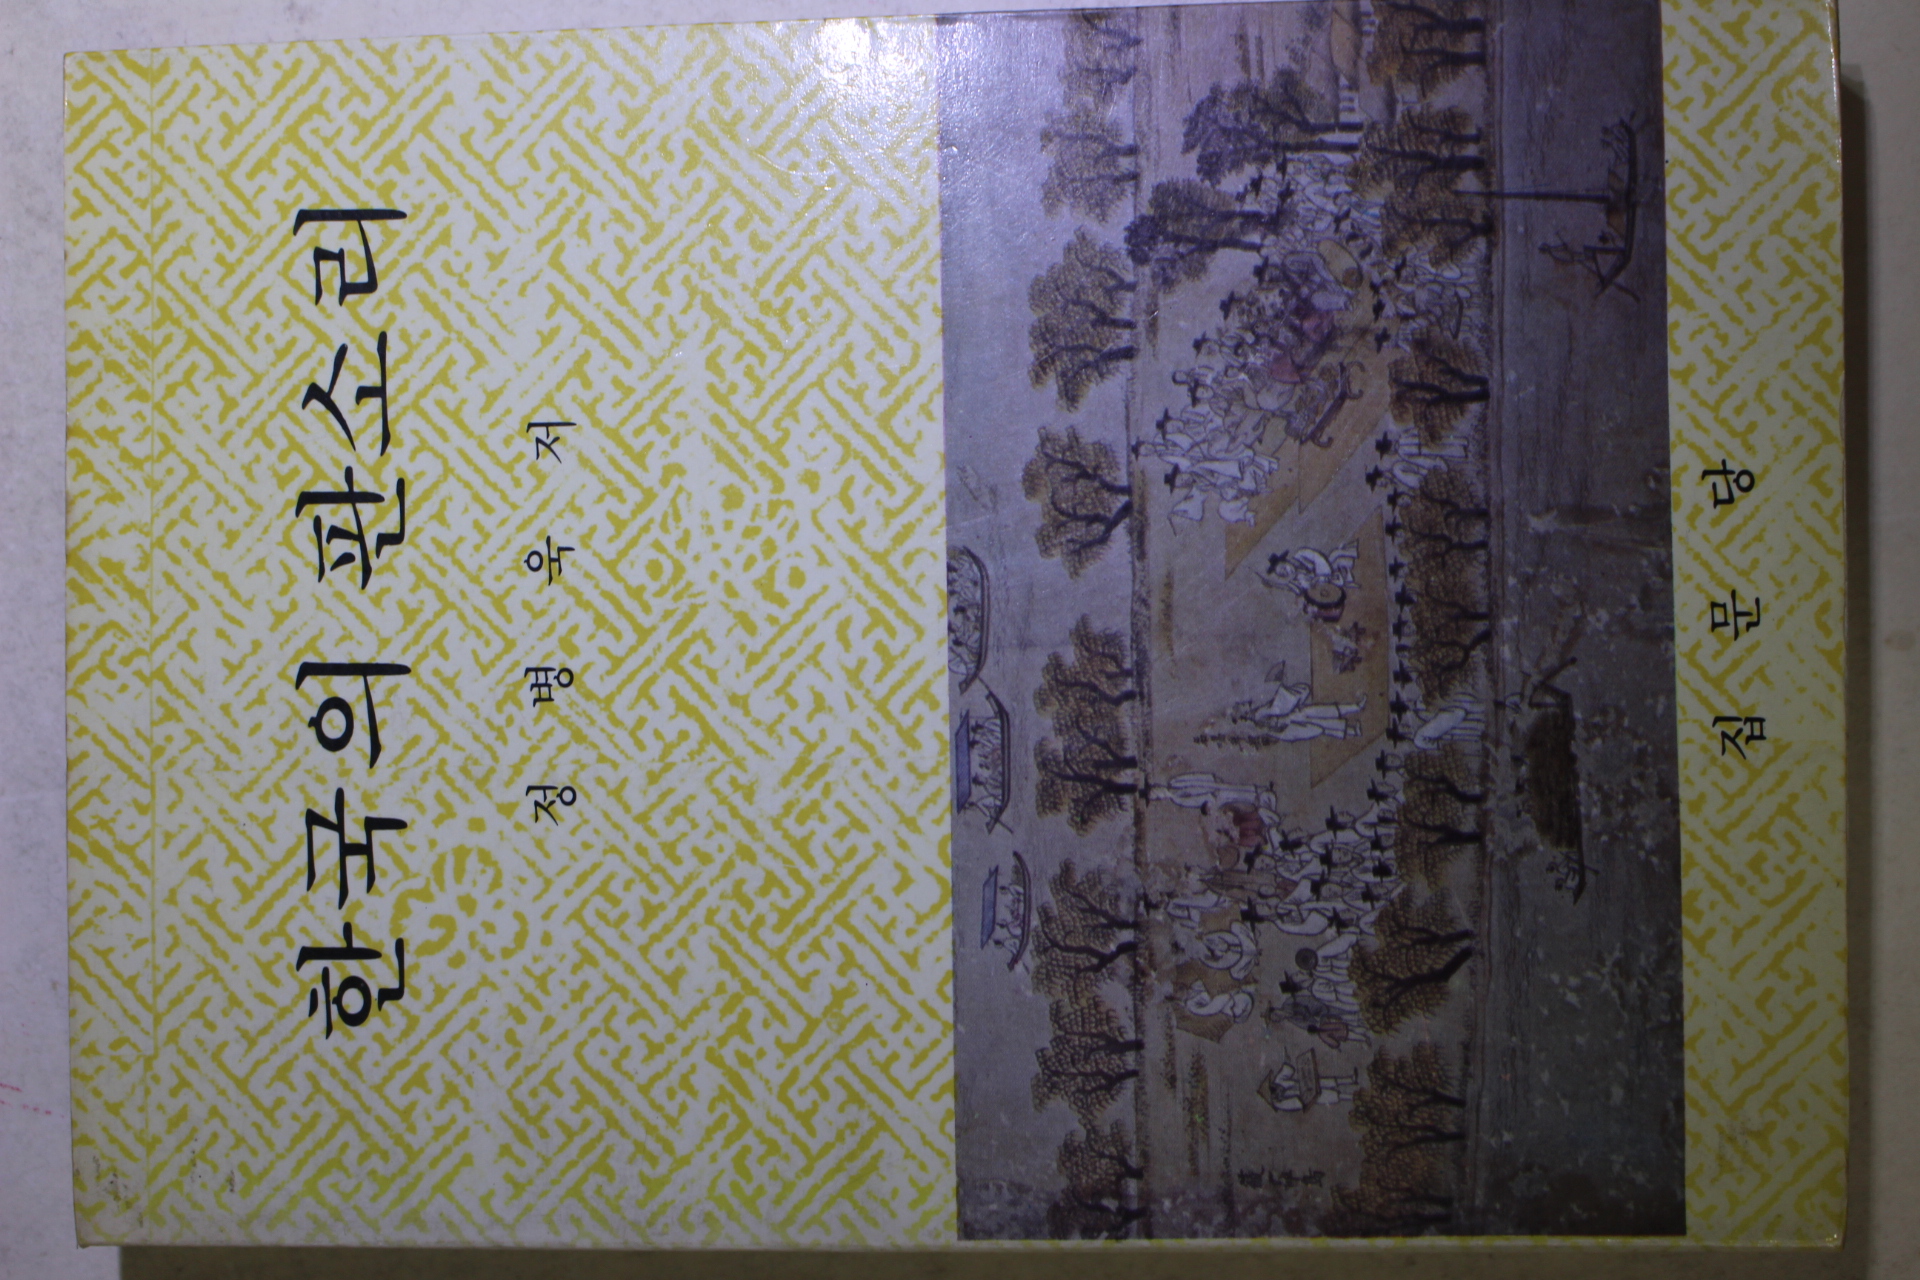 한국의 판소리
정병욱 저
집문당